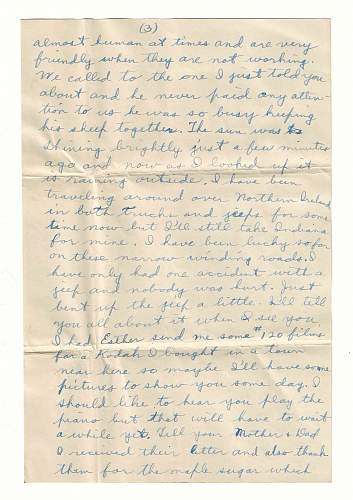 (3)
almost human at times and are very
friendly when they are not working.
We called to the one I just told you
about and he never paid any atten-
tion to us he was so busy keeping
his sheep together. The sun was
shining brightly just a few minutes
ago and now as I looked up it
is raining outside. I have been
traveling around over Northern Ireland
in both trucks and jeeps for some
time now but I'll still take Indiana
for mine. I have been lucky so far
on these narrow winding roads. I
have only had one accident with a
jeep and nobody was hurt. Just
bent up the jeep a little. I'll tell
you all about it when I see you
I had Esther send me some #120 films
for a Kodak I bought in a town
near here so maybe I'll have some
pictures to show you some day. I
should like to hear you play the
piano but that will have to wait
a while yet. Tell your Mother & Dad
I received their letter and also thank
them for the maple sugar which